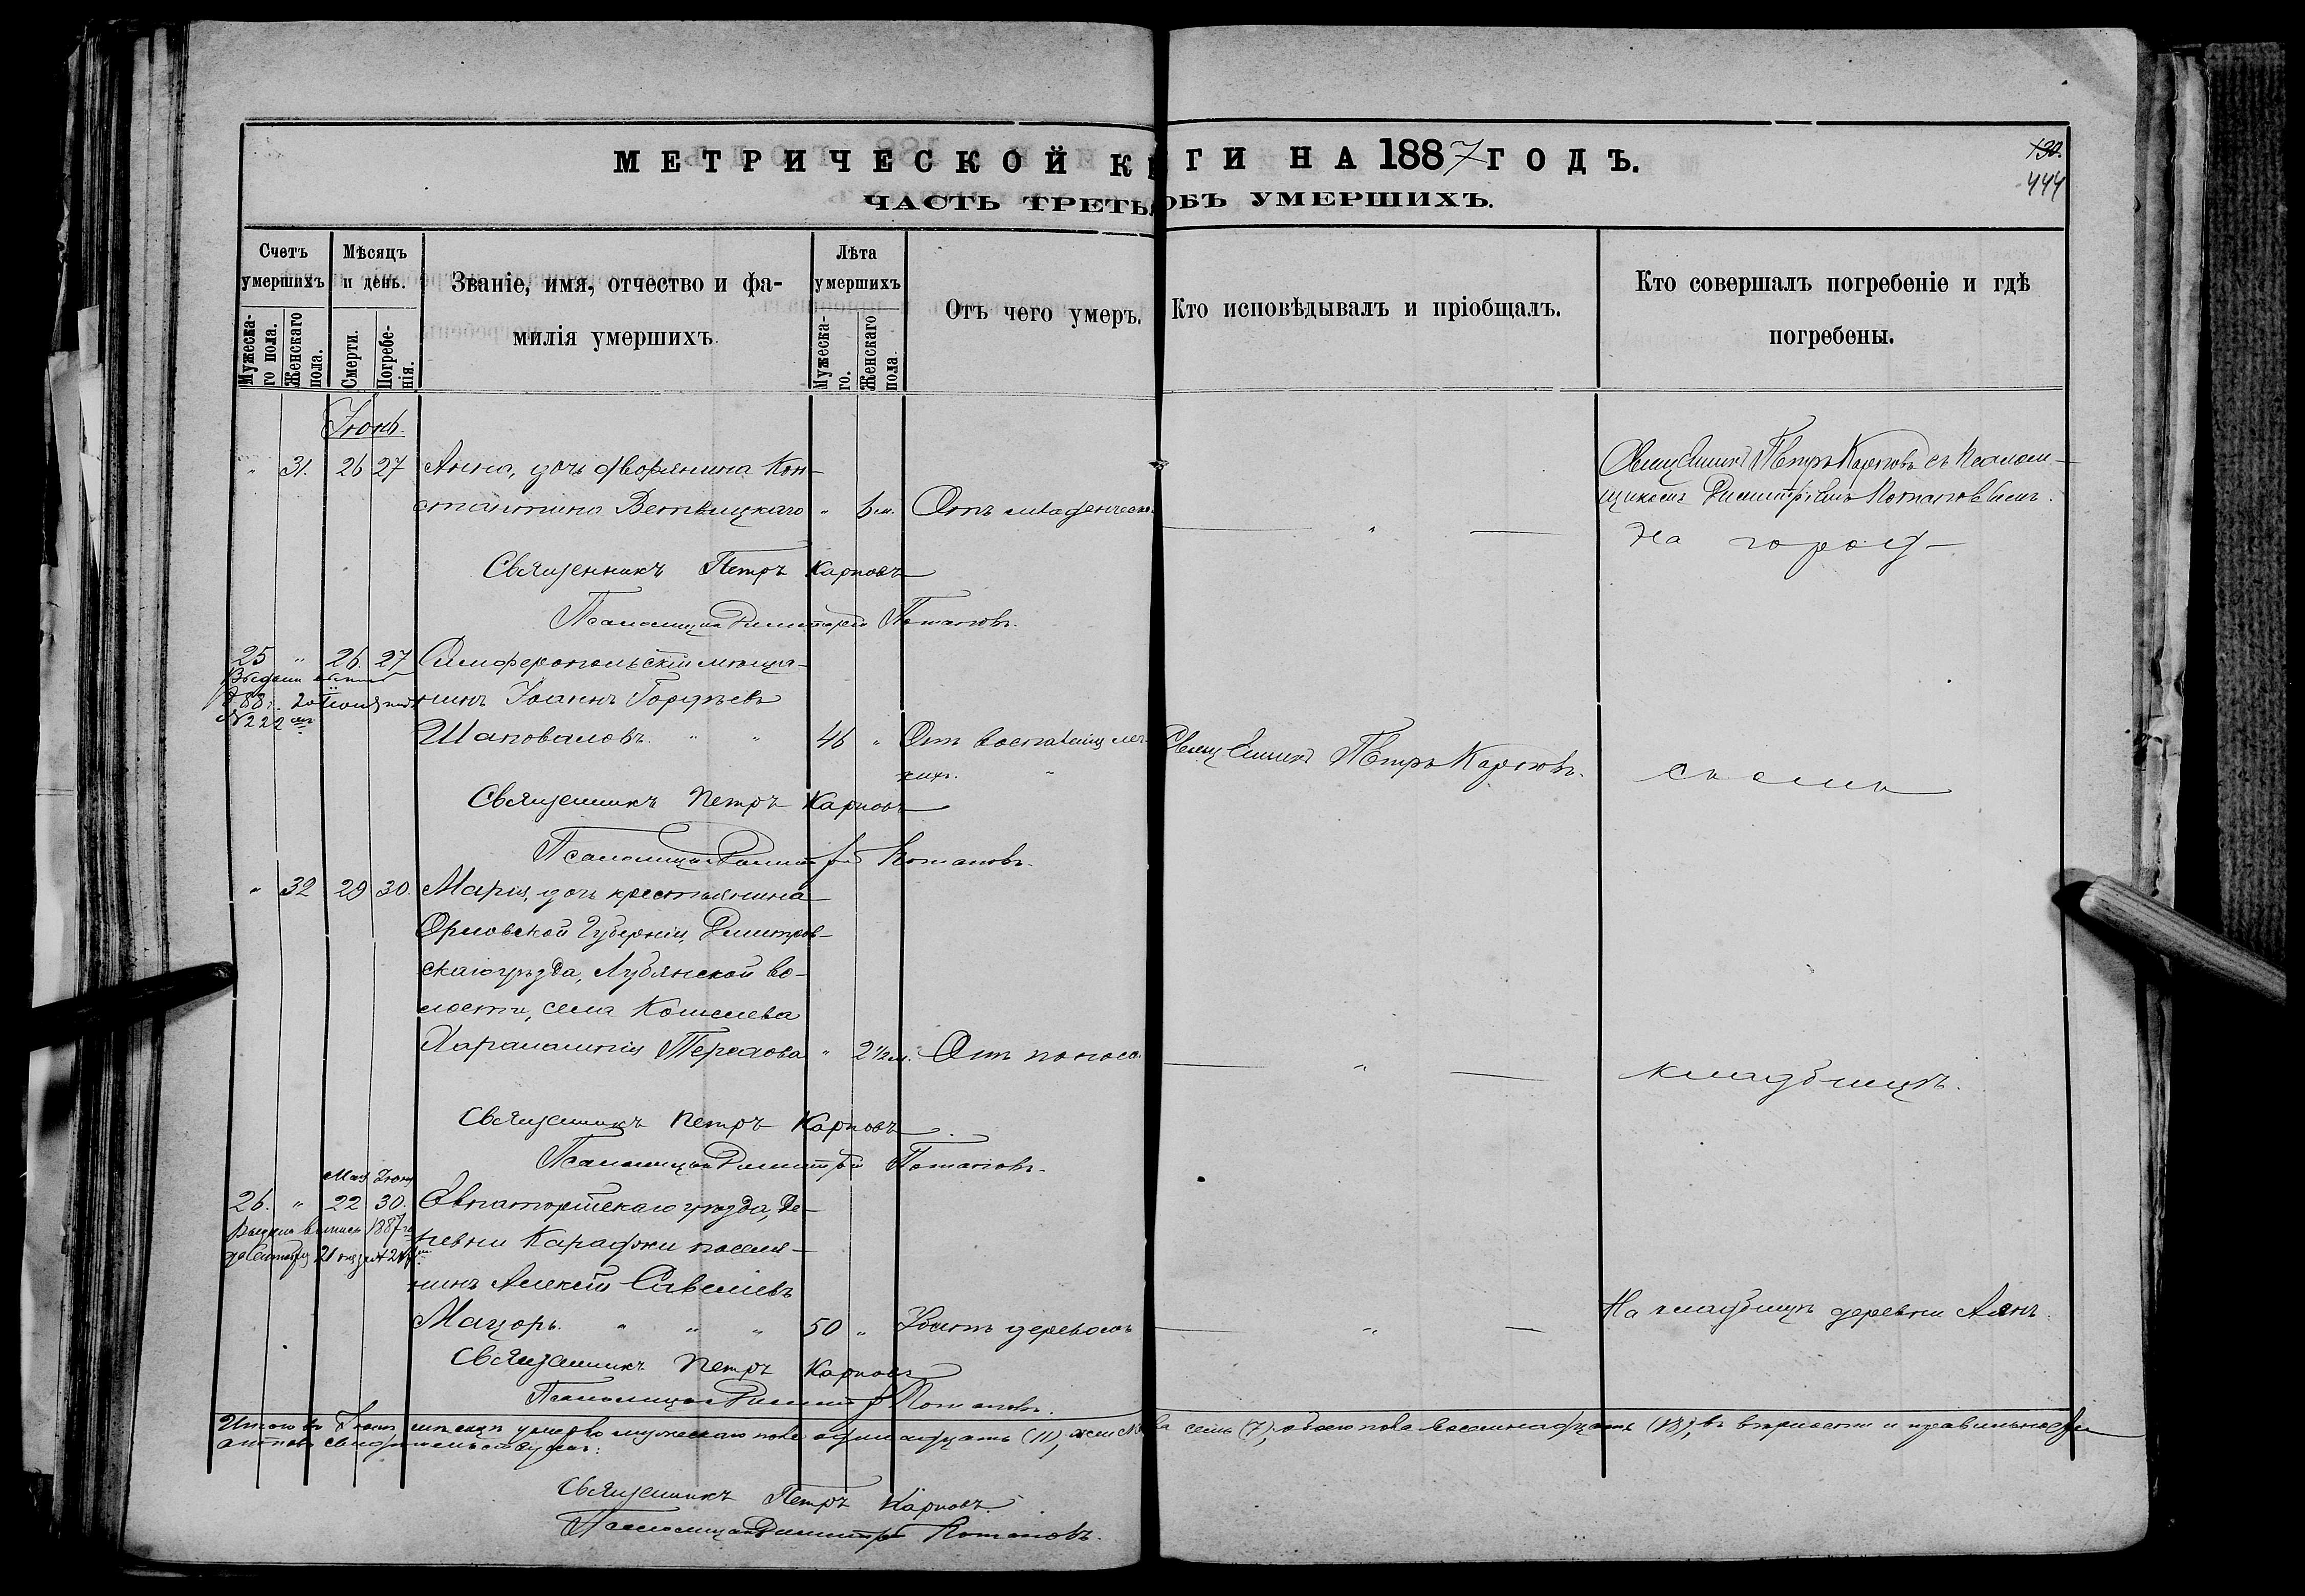 МЕТРИЧЕСКОЙ К ГИ НА 1887 ГОДЪ.
ЧАСТЬ ТРЕТЬ ОБЪ УМЕРШИХЪ.
130.
444
Счетъ умершихъ
Мужеска-
го пола.
Женскаго
пола.
Мѣсяцъ и день.
Смерти.
Погребе-
нія.
Званіе, имя, отчество и фа-
милія умершихъ.
Лѣта умершихъ
Мужеска-
го.
Женскаго
пола.
Отъ чего умеръ.
Кто исповѣдывалъ и пріобщалъ.
Кто совершалъ погребеніе и гдѣ
погребены.
Іюнь.
" 31. 26 27 Анна, дочь дворянина Кон-
стантина " 6 м. Отъ младенческо
Священникъ Петръ Карповъ съ Псалом-
щикомъ Димитріемъ Потаповымъ.
На город-
Священникъ Петръ Карповъ
Псаломщикъ Димитрій Потаповъ.
25 " 26. 27 Симферопольскій мѣща-
нинъ Іоаннъ Гордѣевъ
Шаповаловъ. " " 46 " Отъ воспаленія лег-
кихъ. "
№ 222
Священникъ Петръ Карповъ.
скомъ
Священникъ Петръ Карповъ
Псаломщикъ Димитрій Потаповъ.
" 32 29 30. Марія, дочь крестьянина
Орловской Губерніи, Димитров-
скаго уѣзда, Лубянской во-
лости, села Кошелева
Харалампія Терехова " 2½ м. Отъ поноса
кладбищѣ.
Священникъ Петръ Карповъ
Псаломщикъ Димитрій Потаповъ.
Мая Іюня
26. " 22 30. Евпаторійскаго уѣзда, де-
ревни Караджи поселя-
нинъ Алексѣй Савеліевъ
Мацорь. " " " 50 " Убитъ деревомъ
На кладбищѣ деревни Аянъ.
Священникъ Петръ Карповъ
Псаломщикъ Димитрій Потаповъ.
Итого въ Іюнѣ мѣсяцѣ умерло мужескаго пола одинадцать (11), женска семь (7), обоего пола восемнадцать (18); въ вѣрности и правильности
актовъ свидѣтельствуемъ:
Священникъ Петръ Карповъ
Псаломщикъ Димитрій Потаповъ.